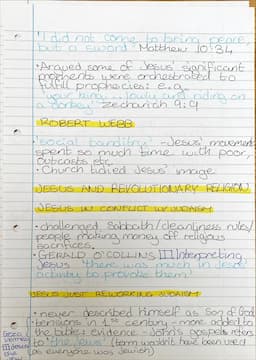 'I did not come to bring peace,
but a sword' Matthew 10:34
• Argued some of Jesus' significant
moments were orchestrated to
fulfill prophecies: e.g.
'your king... lowly and riding on
a donkey' Zechariah 9:9
ROBERT WEBB
• 'social banditry' - Jesus' movement
spent so much time with poor,
outcasts etc.
• Church tidied Jesus' image
JESUS AND REVOLUTIONARY RELIGION
JESUS IN CONFLICT W/ JUDAISM
• challenged Sabbath/cleanliness rules/
people making money off religious
sacrifices.
• GERALD O'COLLINS Interpreting
Jesus 'there was much in Jesus'
activity to provoke them'
JESUS JUST REWORKING JUDAISM
• never described himself as Son of God
• tensions in 1st century - more added to
the built evidence - John's gospels refers
to 'the Jews' (term wouldn't have been used
as everyone was Jewish)